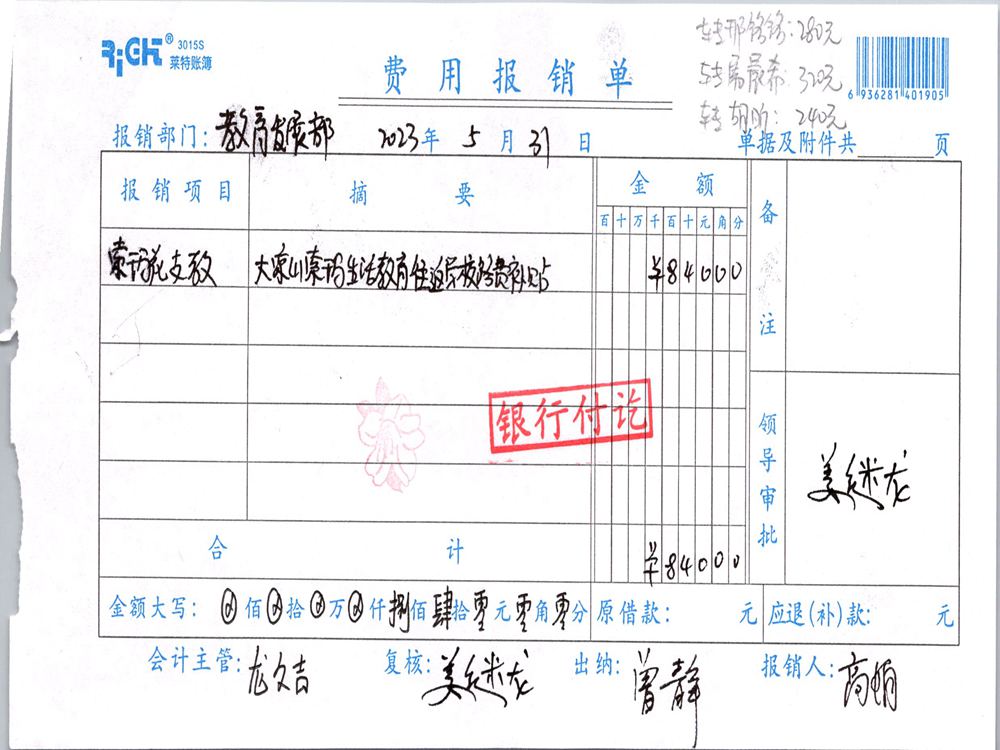 RiGHT® 3015S
莱特账簿
费用报销单
转那铬铬:280元
转 最希:320元
转 阶:240元
6 936281 401905
报销部门:教育发展部 2023年 5 月 31 日
单据及附件共 页
报销项目 摘 要 金 额 备注
百十万千百十元角分
索玛花支教 大凉山索玛生活教育 补贴 ¥84000
银行付讫
领导审批 姜继龙
合 计 ¥84000
金额大写: 佰 拾 万 仟 捌佰 肆拾 零元 零角 零分 原借款: 元 应退(补)款: 元
会计主管:龙文吉 复核:姜继龙 出纳:曾静 报销人:高娟